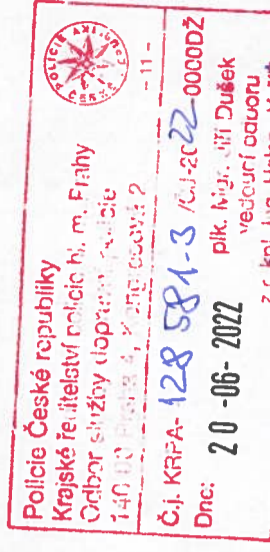 Policie České republiky
Krajské ředitelství policie hl. m. Prahy
Odbor služby dopravní policie
140 00 Praha 4, 2
- 11 -
Č.j. KRPA- 128 581-3 /ČJ-2022-0000DŽ
Dne: 20 -06- 2022 plk. Mgr. Jiří Dušek
vedoucí odboru